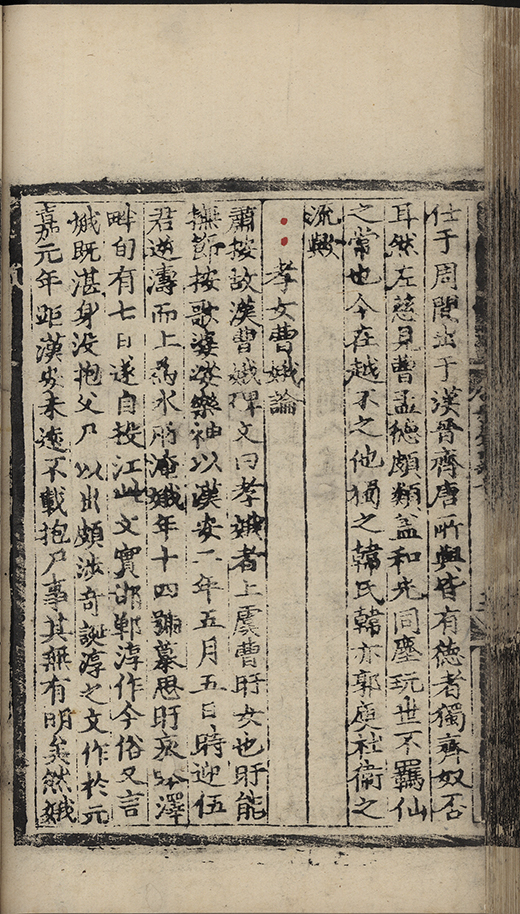 仕于周閒出于漢晉齊唐所與皆有德者獨齊奴否
耳然左慈見曹孟德頗類葢和光同塵玩世不羈仙
之常也今在越不之他獨之韓氏韓亦郭庾杜衛之
流歟
孝女曹娥論
蕭按故漢曹娥碑文曰孝娥者上虞曹盱女也盱能
撫節按歌婆娑樂神以漢安二年五月五日時迎伍
君逆濤而上為水所淹娥年十四號慕思盱哀吟澤
畔旬有七日遂自投江此文實邯鄲淳作今俗又言
娥既湛身没抱父尸以出頗涉奇誕淳之文作於元
嘉元年距漢安未遠不載抱尸事其無有明矣然娥